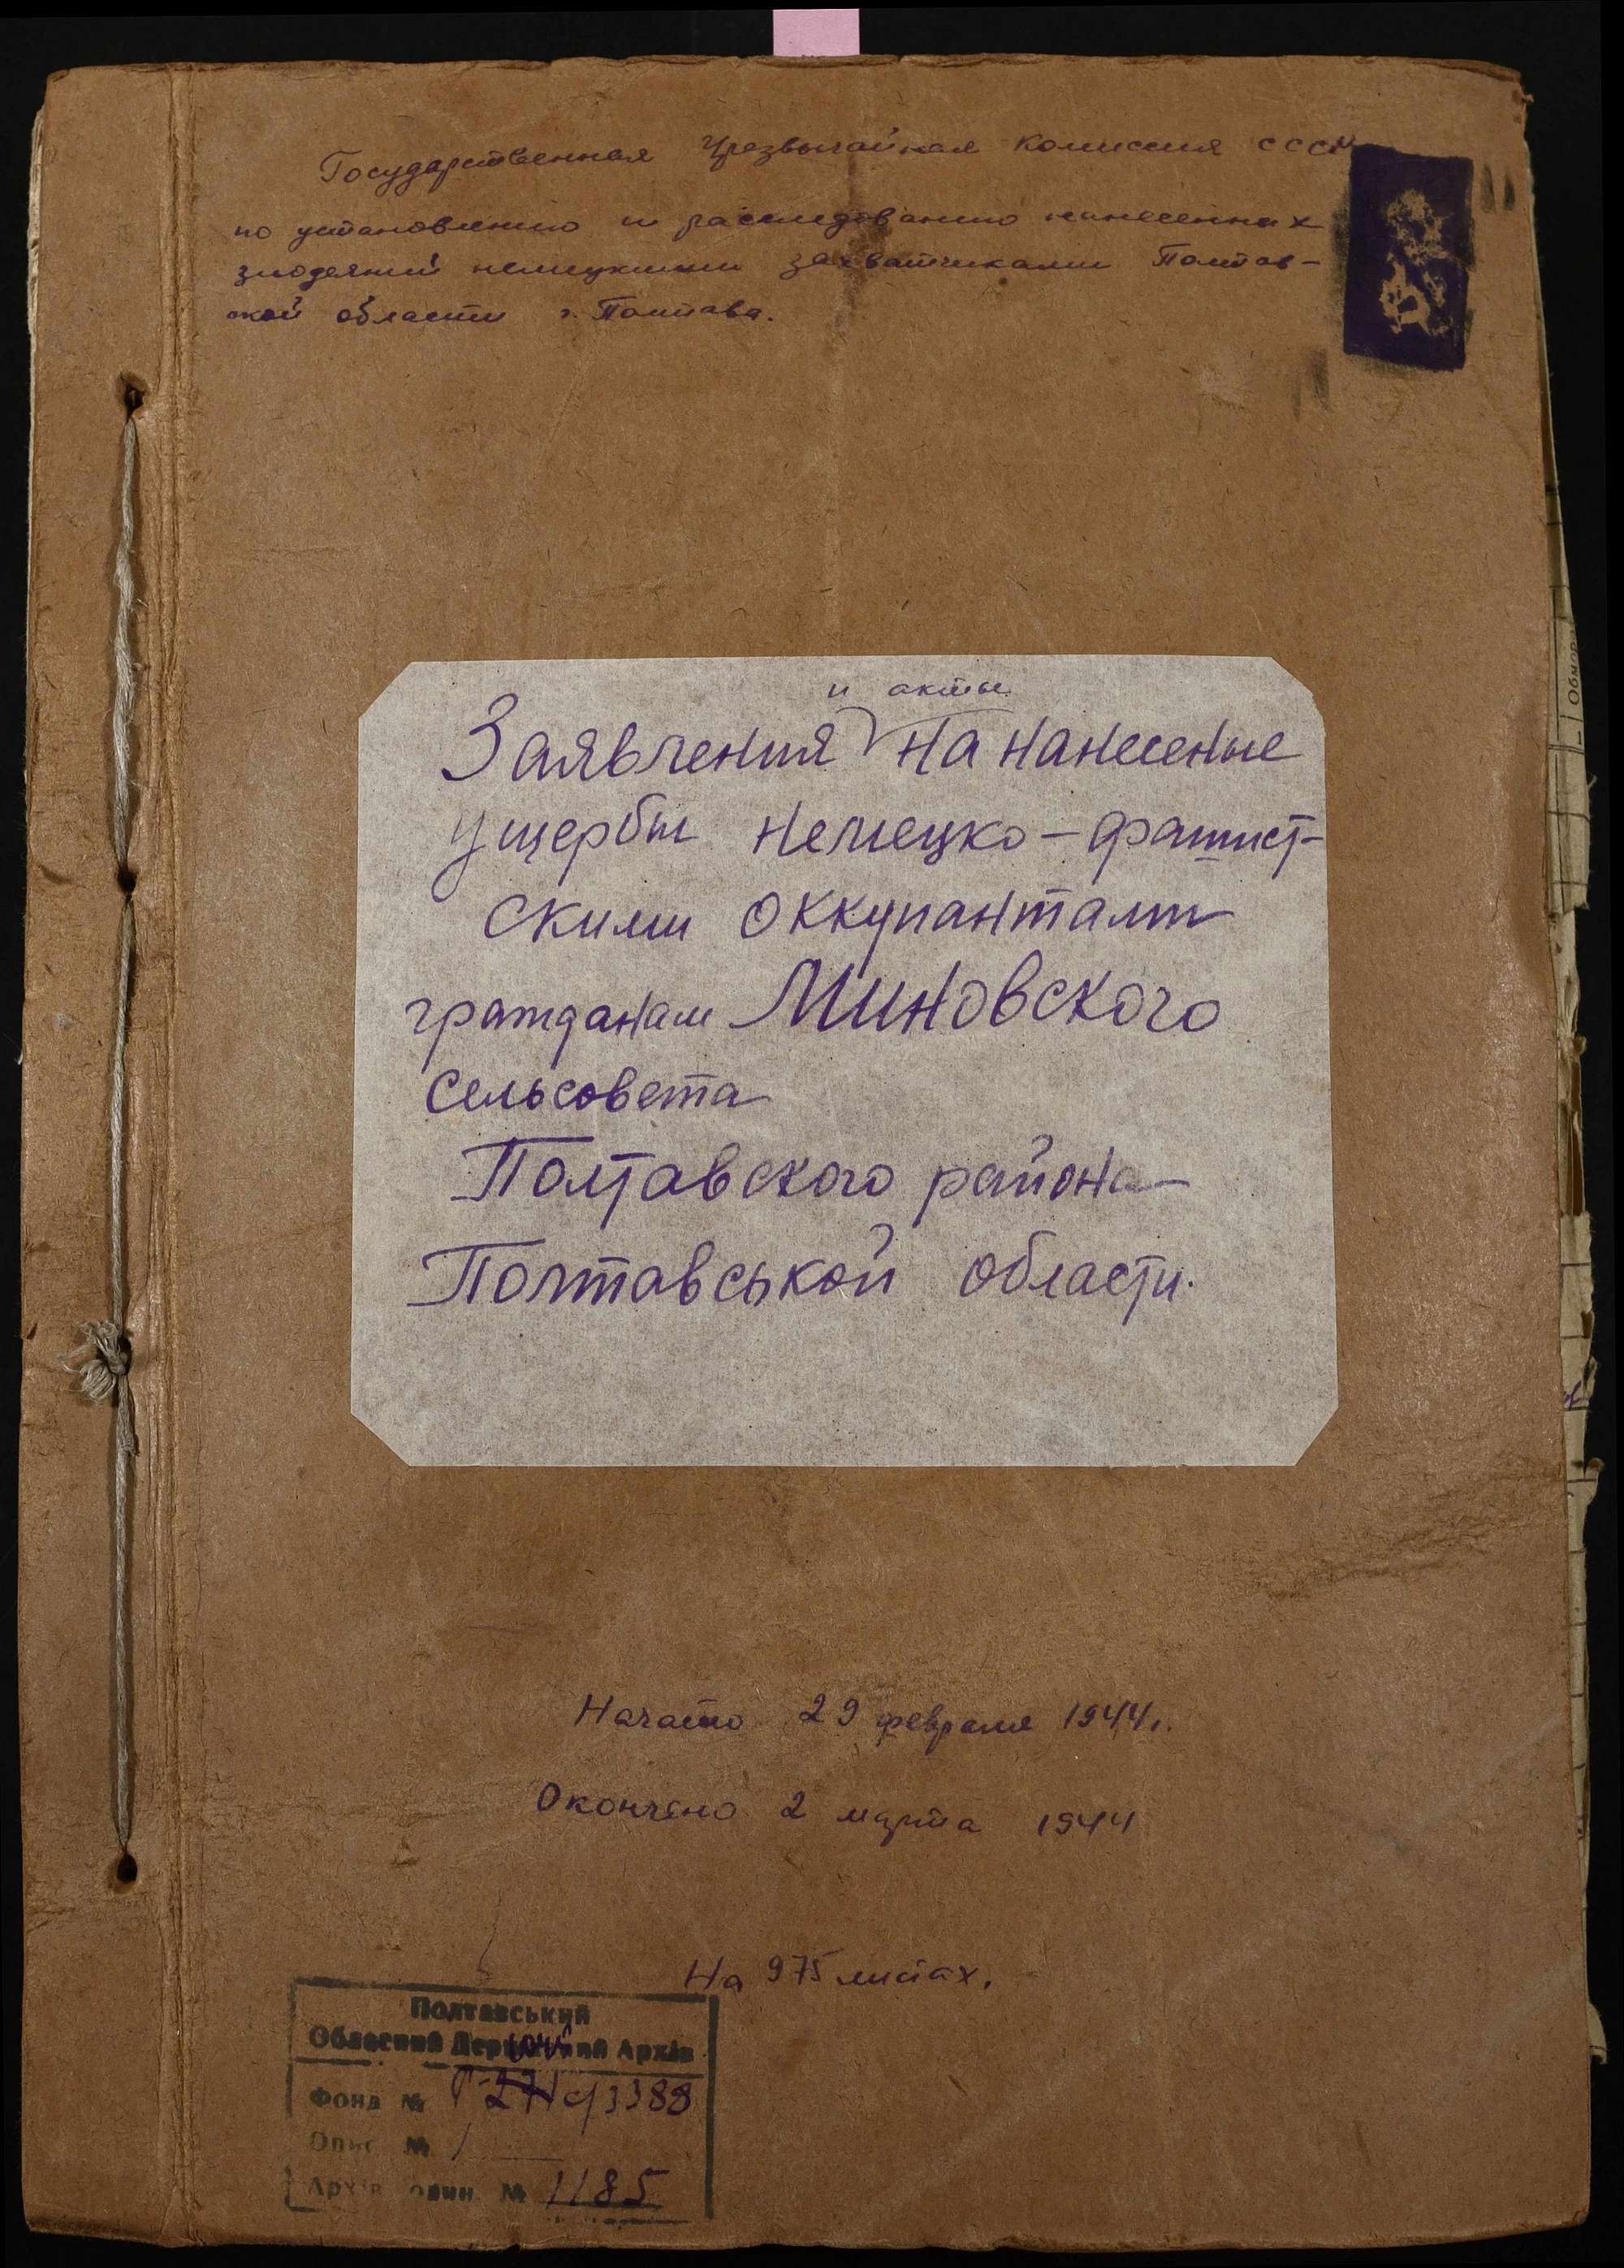 Государственная Чрезвычайная Комиссия СССР
по установлению и расследованию нанесенных
злодеяний немецкими захватчиками Полтав-
ской области г. Полтава.
и акты
Заявления на нанесеные
ущербы немецко-фашист-
скими оккупантами
гражданам Миновского
сельсовета
Полтавского района
Полтавськой области.
Начато 29 февраля 1944 г.
Окончено 2 марта 1944
На 975 листах.
Полтавський
Обласний Державний Архів
Фонд № Р- 3388
Опис № 1
Архів. один. № 1185